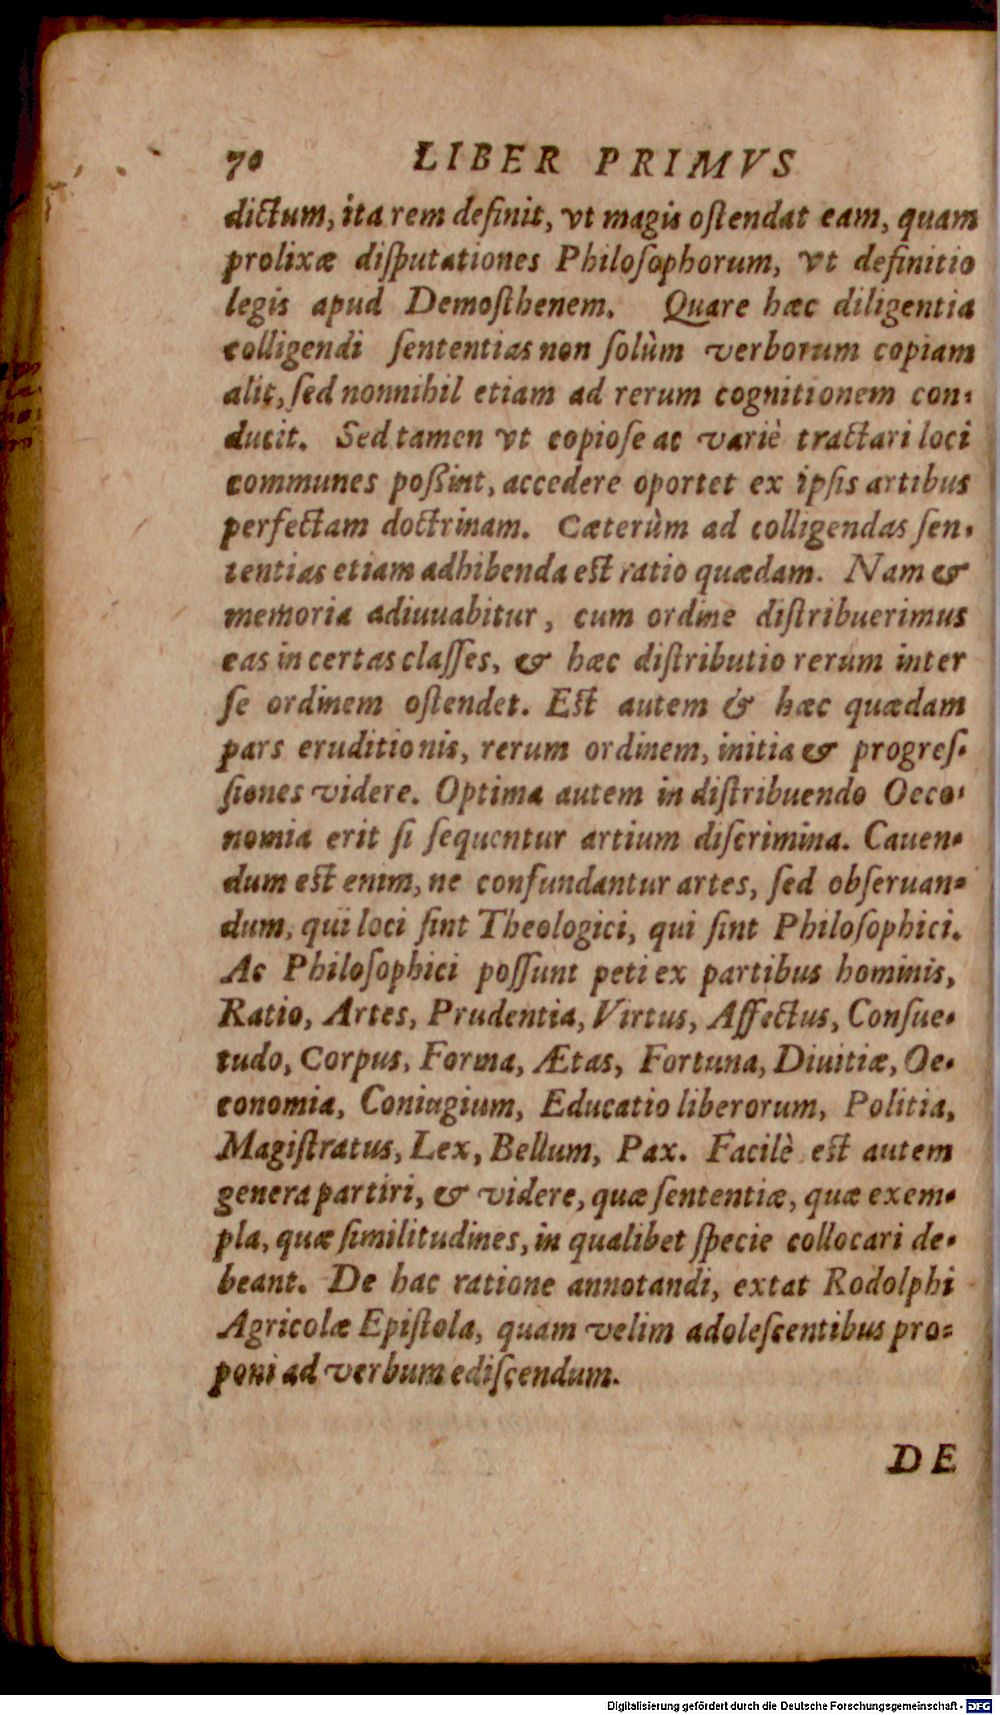 70 LIBER PRIMVS
dictum, ita rem definit, vt magis oſtendat eam, quam
prolixæ diſputationes Philoſophorum, vt definitio
legis apud Demoſthenem. Quare hæc diligentia
colligendi ſententias non ſolùm verborum copiam
alit, ſed nonnihil etiam ad rerum cognitionem con-
ducit. Sed tamen vt copioſe ac variè tractari loci
communes poßint, accedere oportet ex ipſis artibus
perfectam doctrinam. Cæterùm ad colligendas ſen-
tentias etiam adhibenda eſt ratio quædam. Nam &
memoria adiuuabitur, cum ordine diſtribuerimus
eas in certas claſſes, & hæc diſtributio rerum inter
ſe ordinem oſtendet. Eſt autem & hæc quædam
pars eruditionis, rerum ordinem, initia & progreſ-
ſiones videre. Optima autem in diſtribuendo Oeco-
nomia erit ſi ſequentur artium diſcrimina. Cauen-
dum eſt enim, ne confundantur artes, ſed obſeruan-
dum, qui loci ſint Theologici, qui ſint Philoſophici.
Ac Philoſophici poſſunt peti ex partibus hominis,
Ratio, Artes, Prudentia, Virtus, Affectus, Conſue-
tudo, Corpus, Forma, Ætas, Fortuna, Diuitiæ, Oe-
conomia, Coniugium, Educatio liberorum, Politia,
Magiſtratus, Lex, Bellum, Pax. Facilè eſt autem
genera partiri, & videre, quæ ſententiæ, quæ exem-
pla, quæ ſimilitudines, in qualibet ſpecie collocari de-
beant. De hac ratione annotandi, extat Rodolphi
Agricolæ Epiſtola, quam velim adoleſcentibus pro-
poni ad verbum ediſcendum.
DE
Digitalisierung gefördert durch die Deutsche Forschungsgemeinschaft - DFG